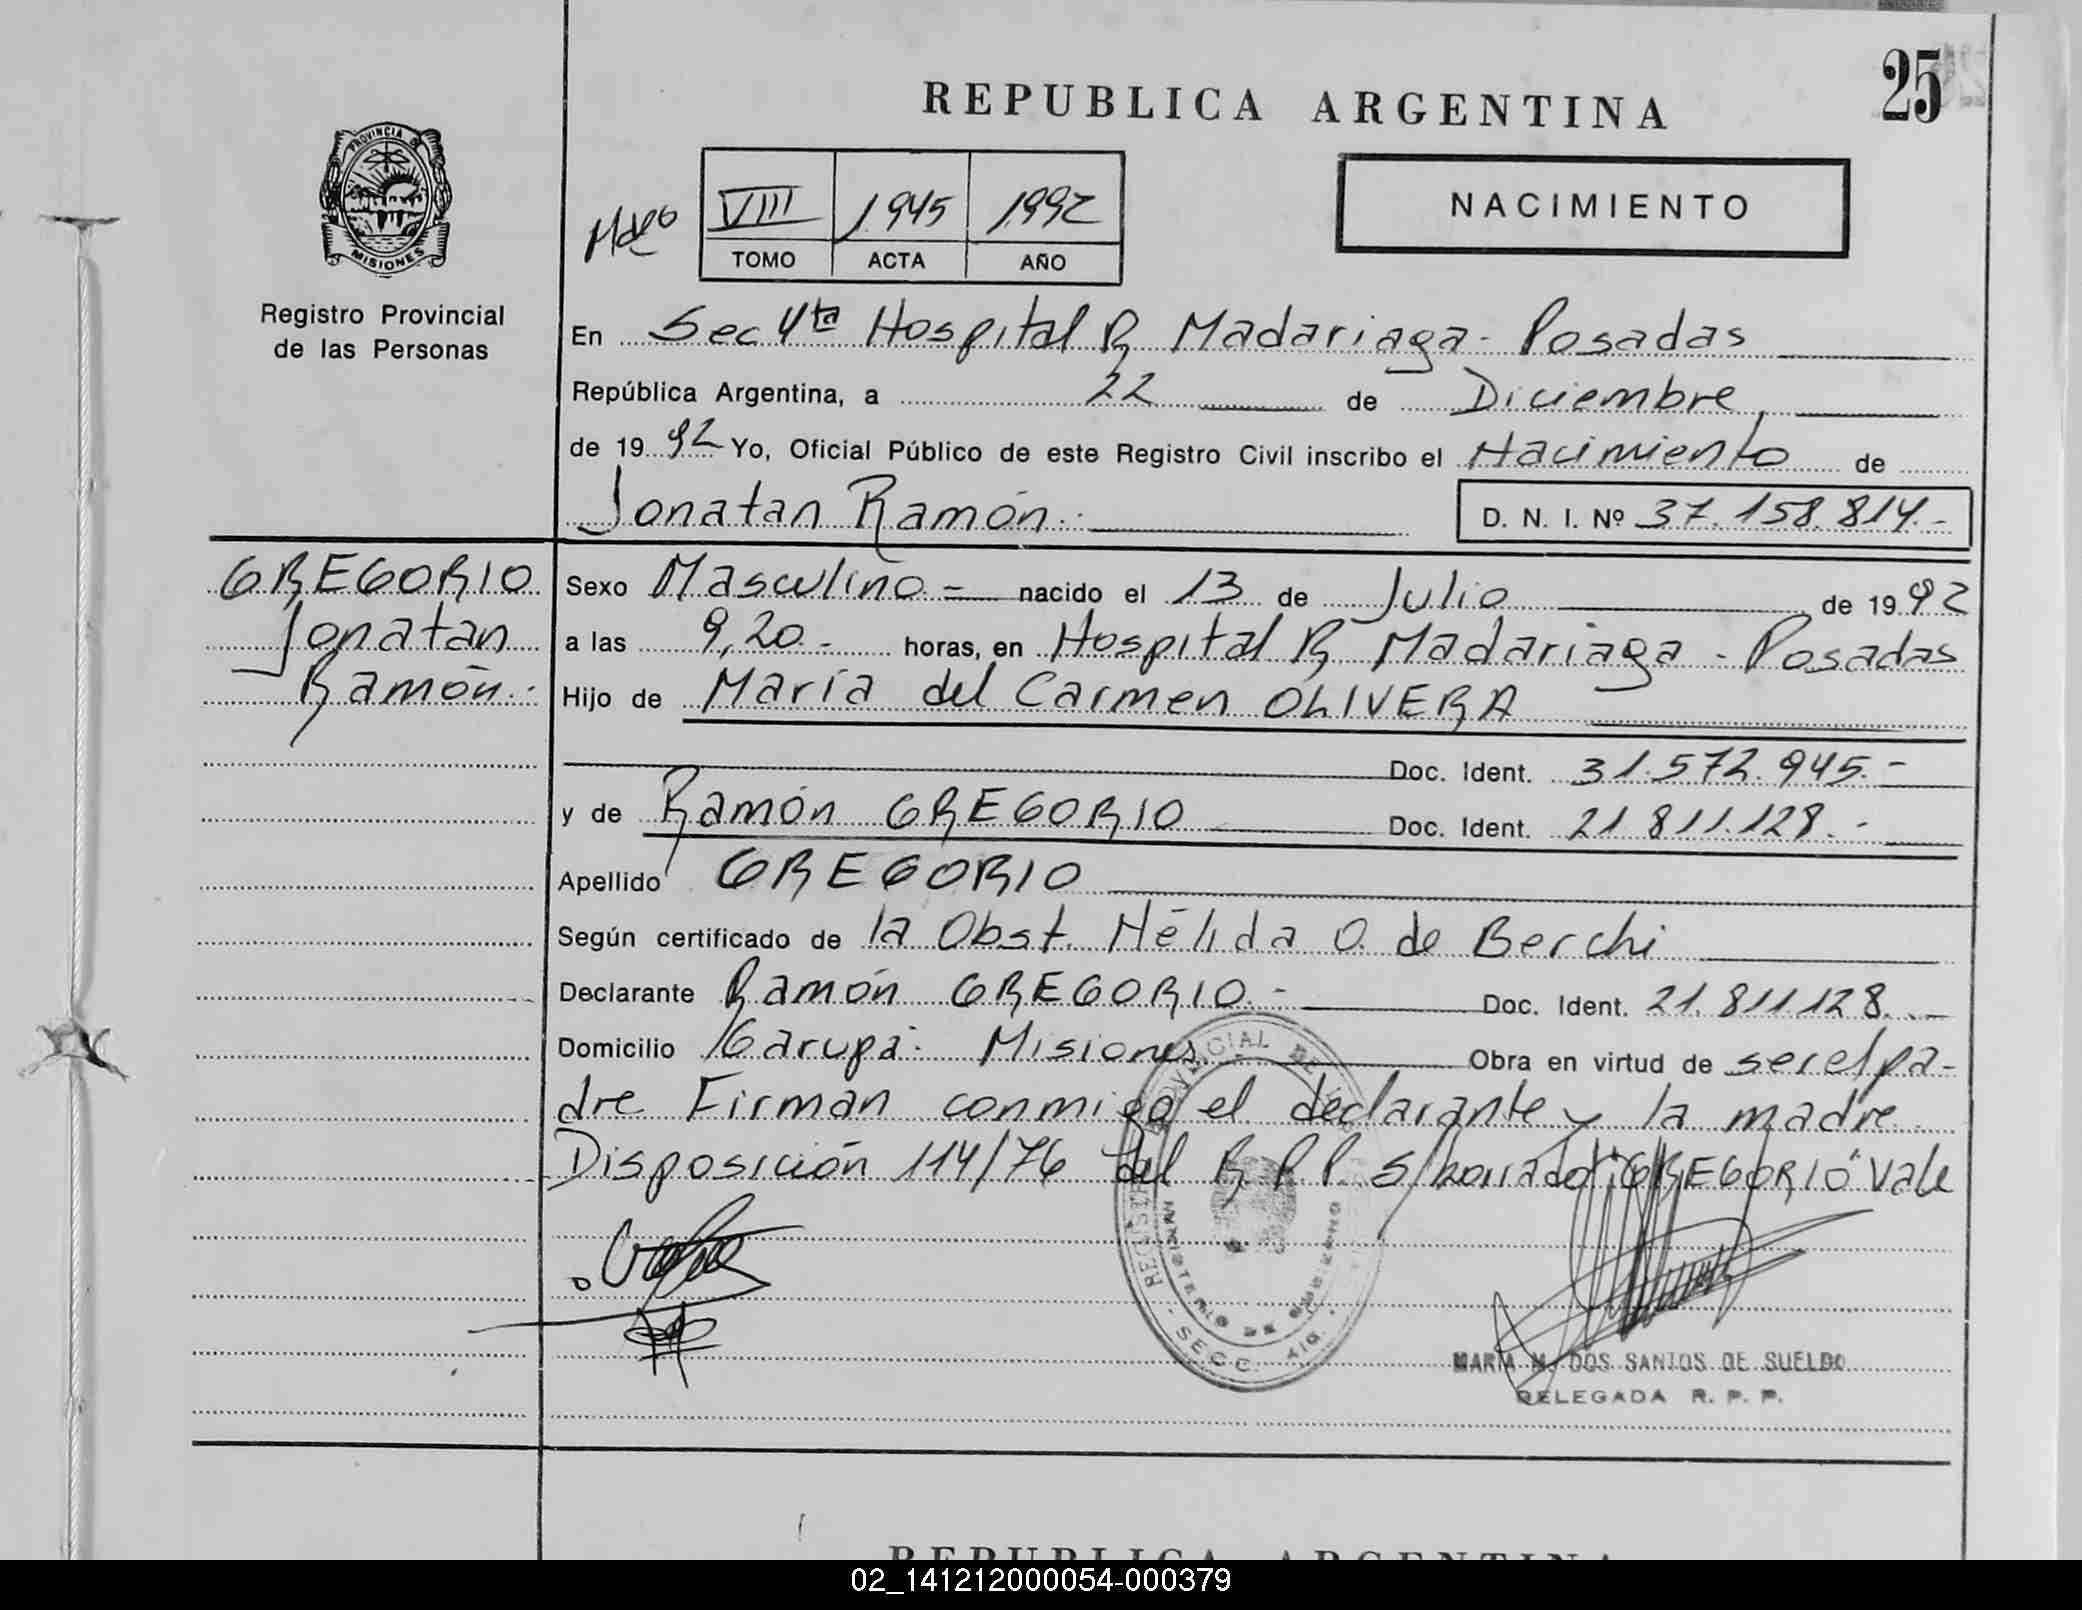 25
REPUBLICA ARGENTINA
PROVINCIA DE
MISIONES
Registro Provincial
de las Personas
VIII 1945 1992
TOMO ACTA AÑO
NACIMIENTO
En Sec 4ta Hospital R Madariaga - Posadas
República Argentina, a 22 de Diciembre
de 1992 Yo, Oficial Público de este Registro Civil inscribo el Nacimiento de
Jonatan Ramón.- D. N. I. Nº 37.158.814.-
GREGORIO
Jonatan
Ramón.-
Sexo Masculino = nacido el 13 de Julio de 1992
a las 9,20.- horas, en Hospital R Madariaga - Posadas
Hijo de María del Carmen OLIVERA
Doc. Ident. 31.572.945.-
y de Ramón GREGORIO Doc. Ident. 21.811.128.-
Apellido GREGORIO
Según certificado de la Obst. Nélida O. de Berchi
Declarante Ramón GREGORIO.- Doc. Ident. 21.811.128.-
Domicilio Garupá - Misiones.- Obra en virtud de ser el pa-
dre Firman conmigo el declarante y la madre
Disposición 114/76 del R.P.P. s/borrado "GREGORIO" Vale
MARIA M. DOS SANTOS DE SUELDO
DELEGADA R. P. P.
REPUBLICA ARGENTINA
02_141212000054-000379